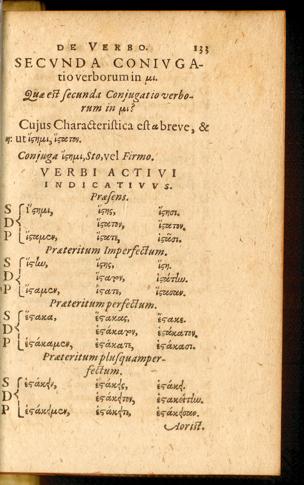 DE VERBO. 133
SECVNDA CONIVGA-
tio verborum in μι.
Quæ est secunda Conjugatio verbo-
rum in μι?
Cujus Characteristica est α breve, &
η: ut ἵστημι, ἵστατον.
Conjuga ἵστημι, Sto, vel Firmo.
VERBI ACTIVI
INDICATIVVS.
Præsens.
S ἵστημι, ἵστης, ἵστησι.
D ἵστατον, ἵστατον.
P ἵσταμεν, ἵστατε, ἱστᾶσι.
Præteritum Imperfectum.
S ἵστην, ἵστης, ἵστη.
D ἵστατον, ἱστάτην.
P ἵσταμεν, ἵστατε, ἵστασαν.
Præteritum perfectum.
S ἕστακα, ἕστακας, ἕστακε.
D ἑστάκατον, ἑστάκατον.
P ἑστάκαμεν, ἑστάκατε, ἑστάκασι.
Præteritum plusquamper-
fectum.
S ἑστάκην, ἑστάκης, ἑστάκη.
D ἑστάκητον, ἑστακήτην.
P ἑστάκημεν, ἑστάκητε, ἑστάκησαν.
Aorist.